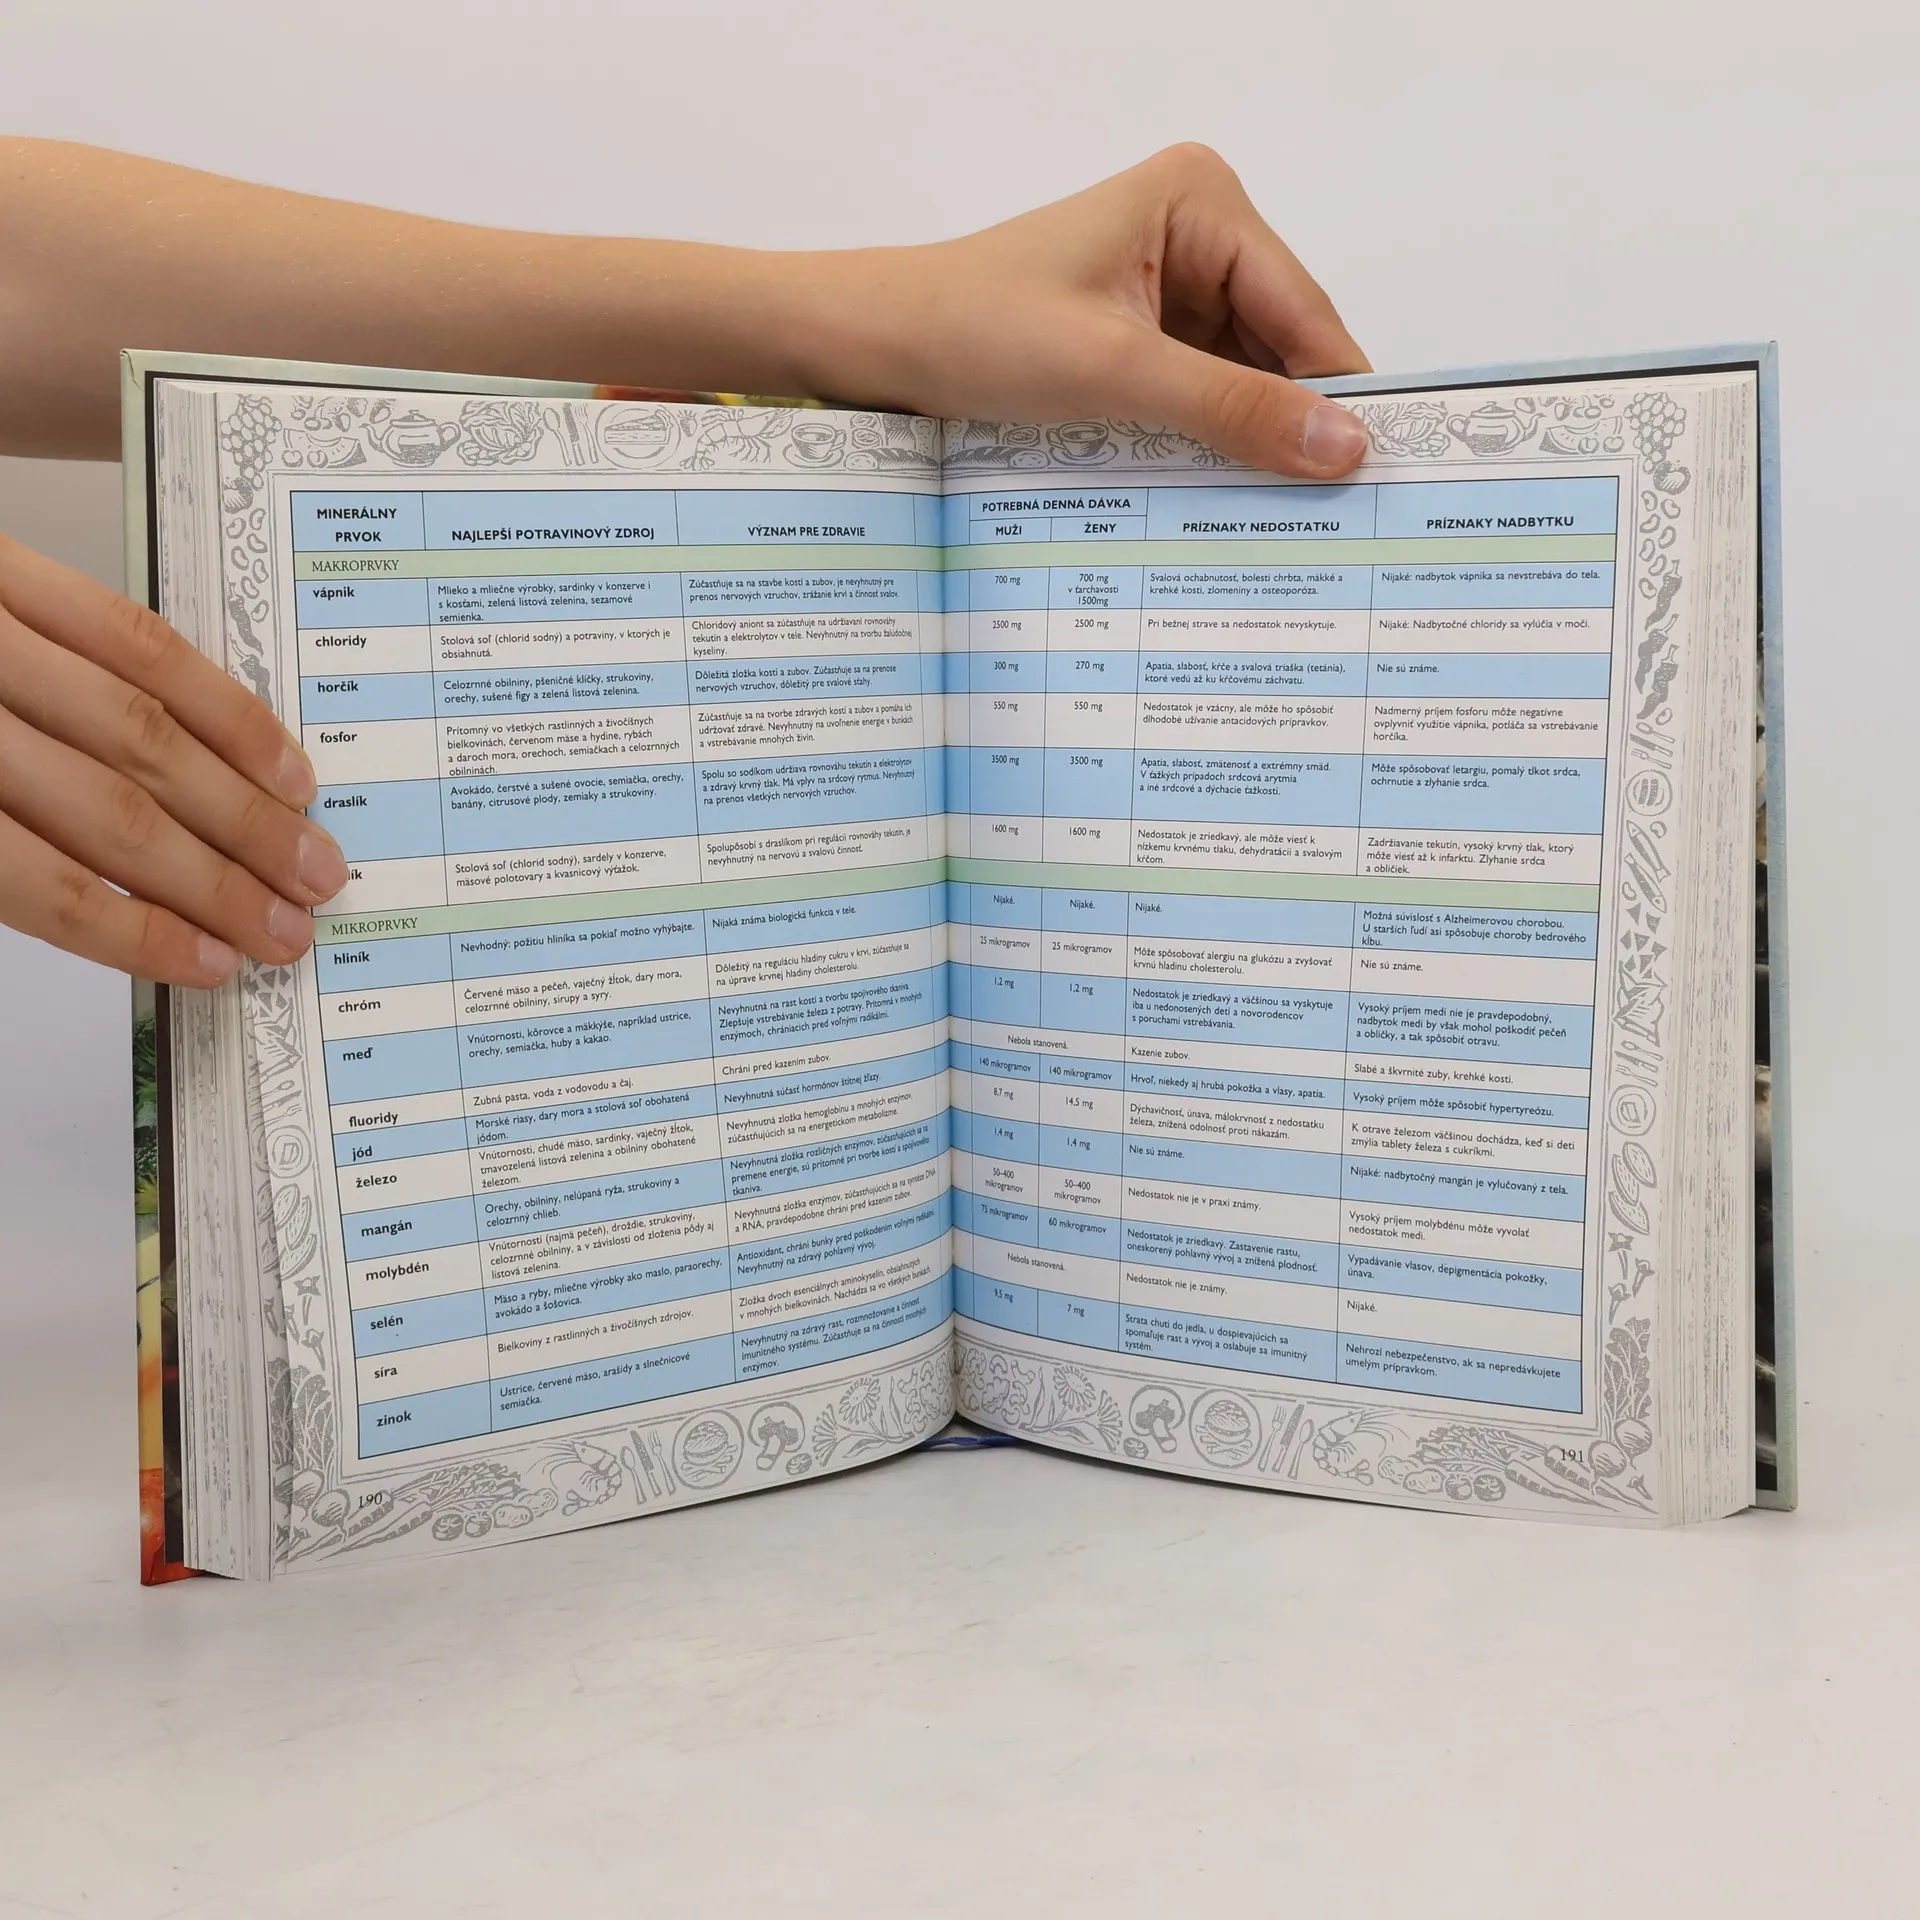 MINERÁLNY
PRVOK
NAJLEPŠÍ POTRAVINOVÝ ZDROJ
VÝZNAM PRE ZDRAVIE
POTREBNÁ DENNÁ DÁVKA
MUŽI
ŽENY
PRÍZNAKY NEDOSTATKU
PRÍZNAKY NADBYTKU
MAKROPRVKY
vápnik
Mlieko a mliečne výrobky, sardinky v konzerve i
s kosťami, zelená listová zelenina, sezamové
semienka.
Zúčastňuje sa na stavbe kostí a zubov, je nevyhnutný pre
prenos nervových vzruchov, zrážanie krvi a činnosť svalov.
700 mg
700 mg
v ťarchavosti
1500mg
Svalová ochabnutosť, bolesti chrbta, mäkké a
krehké kosti, zlomeniny a osteoporóza.
Nijaké: nadbytok vápnika sa nevstrebáva do tela.
chloridy
Stolová soľ (chlorid sodný) a potraviny, v ktorých je
obsiahnutá.
Chloridový aniont sa zúčastňuje na udržiavaní rovnováhy
tekutín a elektrolytov v tele. Nevyhnutný na tvorbu žalúdočnej
kyseliny.
2500 mg
2500 mg
Pri bežnej strave sa nedostatok nevyskytuje.
Nijaké: Nadbytočné chloridy sa vylúčia v moči.
horčík
Celozrnné obilniny, pšeničné klíčky, strukoviny,
orechy, sušené figy a zelená listová zelenina.
Dôležitá zložka kostí a zubov. Zúčastňuje sa na prenose
nervových vzruchov, dôležitý pre svalové sťahy.
300 mg
270 mg
Apatia, slabosť, kŕče a svalová triaška (tetánia),
ktoré vedú až ku kŕčovému záchvatu.
Nie sú známe.
fosfor
Prítomný vo všetkých rastlinných a živočíšnych
bielkovinách, červenom mäse a hydine, rybách
a daroch mora, orechoch, semiačkach a celozrnných
obilninách.
Zúčastňuje sa na tvorbe zdravých kostí a zubov a pomáha ich
udržovať zdravé. Nevyhnutný na uvoľnenie energie v bunkách
a vstrebávanie mnohých živín.
550 mg
550 mg
Nedostatok je vzácny, ale môže ho spôsobiť
dlhodobé užívanie antacidových prípravkov.
Nadmerný príjem fosforu môže negatívne
ovplyvniť využitie vápnika, potláča sa vstrebávanie
horčíka.
draslík
Avokádo, čerstvé a sušené ovocie, semiačka, orechy,
banány, citrusové plody, zemiaky a strukoviny.
Spolu so sodíkom udržiava rovnováhu tekutín a elektrolytov
a zdravý krvný tlak. Má vplyv na srdcový rytmus. Nevyhnutný
na prenos všetkých nervových vzruchov.
3500 mg
3500 mg
Apatia, slabosť, zmätenosť a extrémny smäd.
V ťažkých prípadoch srdcová arytmia
a iné srdcové a dýchacie ťažkosti.
Môže spôsobovať letargiu, pomalý tlkot srdca,
ochrnutie a zlyhanie srdca.
ík
Stolová soľ (chlorid sodný), sardely v konzerve,
mäsové polotovary a kvasnicový výťažok.
Spolupôsobí s draslíkom pri regulácii rovnováhy tekutín, je
nevyhnutný na nervovú a svalovú činnosť.
1600 mg
1600 mg
Nedostatok je zriedkavý, ale môže viesť k
nízkemu krvnému tlaku, dehydratácii a svalovým
kŕčom.
Zadržiavanie tekutín, vysoký krvný tlak, ktorý
môže viesť až k infarktu. Zlyhanie srdca
a obličiek.
MIKROPRVKY
hliník
Nevhodný: požitiu hliníka sa pokiaľ možno vyhýbajte.
Nijaká známa biologická funkcia v tele.
Nijaké.
Nijaké.
Nijaké.
Možná súvislosť s Alzheimerovou chorobou.
U starších ľudí asi spôsobuje choroby bedrového
kĺbu.
chróm
Červené mäso a pečeň, vaječný žĺtok, dary mora,
celozrnné obilniny, sirupy a syry.
Dôležitý na reguláciu hladiny cukru v krvi, zúčastňuje sa
na úprave krvnej hladiny cholesterolu.
25 mikrogramov
25 mikrogramov
Môže spôsobovať alergiu na glukózu a zvyšovať
krvnú hladinu cholesterolu.
Nie sú známe.
meď
Vnútornosti, kôrovce a mäkkýše, napríklad ustrice,
orechy, semiačka, huby a kakao.
Nevyhnutná na rast kostí a tvorbu spojivového tkaniva.
Zlepšuje vstrebávanie železa z potravy. Prítomná v mnohých
enzýmoch, chrániacich pred voľnými radikálmi.
1,2 mg
1,2 mg
Nedostatok je zriedkavý a väčšinou sa vyskytuje
iba u nedonosených detí a novorodencov
s poruchami vstrebávania.
Vysoký príjem medi nie je pravdepodobný,
nadbytok medi by však mohol poškodiť pečeň
a obličky, a tak spôsobiť otravu.
fluoridy
Zubná pasta, voda z vodovodu a čaj.
Chráni pred kazením zubov.
Nebola stanovená.
Kazenie zubov.
Slabé a škvrnité zuby, krehké kosti.
jód
Morské riasy, dary mora a stolová soľ obohatená
jódom.
Nevyhnutná súčasť hormónov štítnej žľazy.
140 mikrogramov
140 mikrogramov
Hrvoľ, niekedy aj hrubá pokožka a vlasy, apatia.
Vysoký príjem môže spôsobiť hypertyreózu.
železo
Vnútornosti, chudé mäso, sardinky, vaječný žĺtok,
tmavozelená listová zelenina a obilniny obohatené
železom.
Nevyhnutná zložka hemoglobínu a mnohých enzýmov,
zúčastňujúcich sa na energetickom metabolizme.
8,7 mg
14,5 mg
Dýchavičnosť, únava, málokrvnosť z nedostatku
železa, znížená odolnosť proti nákazám.
K otrave železom väčšinou dochádza, keď si deti
zmýlia tablety železa s cukríkmi.
mangán
Orechy, obilniny, nelúpaná ryža, strukoviny a
celozrnný chlieb.
Nevyhnutná zložka rozličných enzýmov, zúčastňujúcich sa na
premene energie, sú prítomné pri tvorbe kostí a spojivového
tkaniva.
1,4 mg
1,4 mg
Nie sú známe.
Nijaké: nadbytočný mangán je vylučovaný z tela.
molybdén
Vnútornosti (najmä pečeň), droždie, strukoviny,
celozrnné obilniny, a v závislosti od zloženia pôdy aj
listová zelenina.
Nevyhnutná zložka enzýmov, zúčastňujúcich sa na syntéze DNA
a RNA, pravdepodobne chráni pred kazením zubov.
50–400
mikrogramov
50–400
mikrogramov
Nedostatok nie je v praxi známy.
Vysoký príjem molybdénu môže vyvolať
nedostatok medi.
selén
Mäso a ryby, mliečne výrobky ako maslo, paraorechy,
avokádo a šošovica.
Antioxidant, chráni bunky pred poškodením voľnými radikálmi.
Nevyhnutný na zdravý pohlavný vývoj.
75 mikrogramov
60 mikrogramov
Nedostatok je zriedkavý. Zastavenie rastu,
oneskorený pohlavný vývoj a znížená plodnosť.
Vypadávanie vlasov, depigmentácia pokožky,
únava.
síra
Bielkoviny z rastlinných a živočíšnych zdrojov.
Zložka dvoch esenciálnych aminokyselín, obsiahnutých
v mnohých bielkovinách. Nachádza sa vo všetkých bunkách.
Nebola stanovená.
Nedostatok nie je známy.
Nijaké.
zinok
Ustrice, červené mäso, arašidy a slnečnicové
semiačka.
Nevyhnutný na zdravý rast, rozmnožovanie a činnosť
imunitného systému. Zúčastňuje sa na činnosti mnohých
enzýmov.
9,5 mg
7 mg
Strata chuti do jedla, u dospievajúcich sa
spomaľuje rast a vývoj a oslabuje sa imunitný
systém.
Nehrozí nebezpečenstvo, ak sa nepredávkujete
umelým prípravkom.
190
191